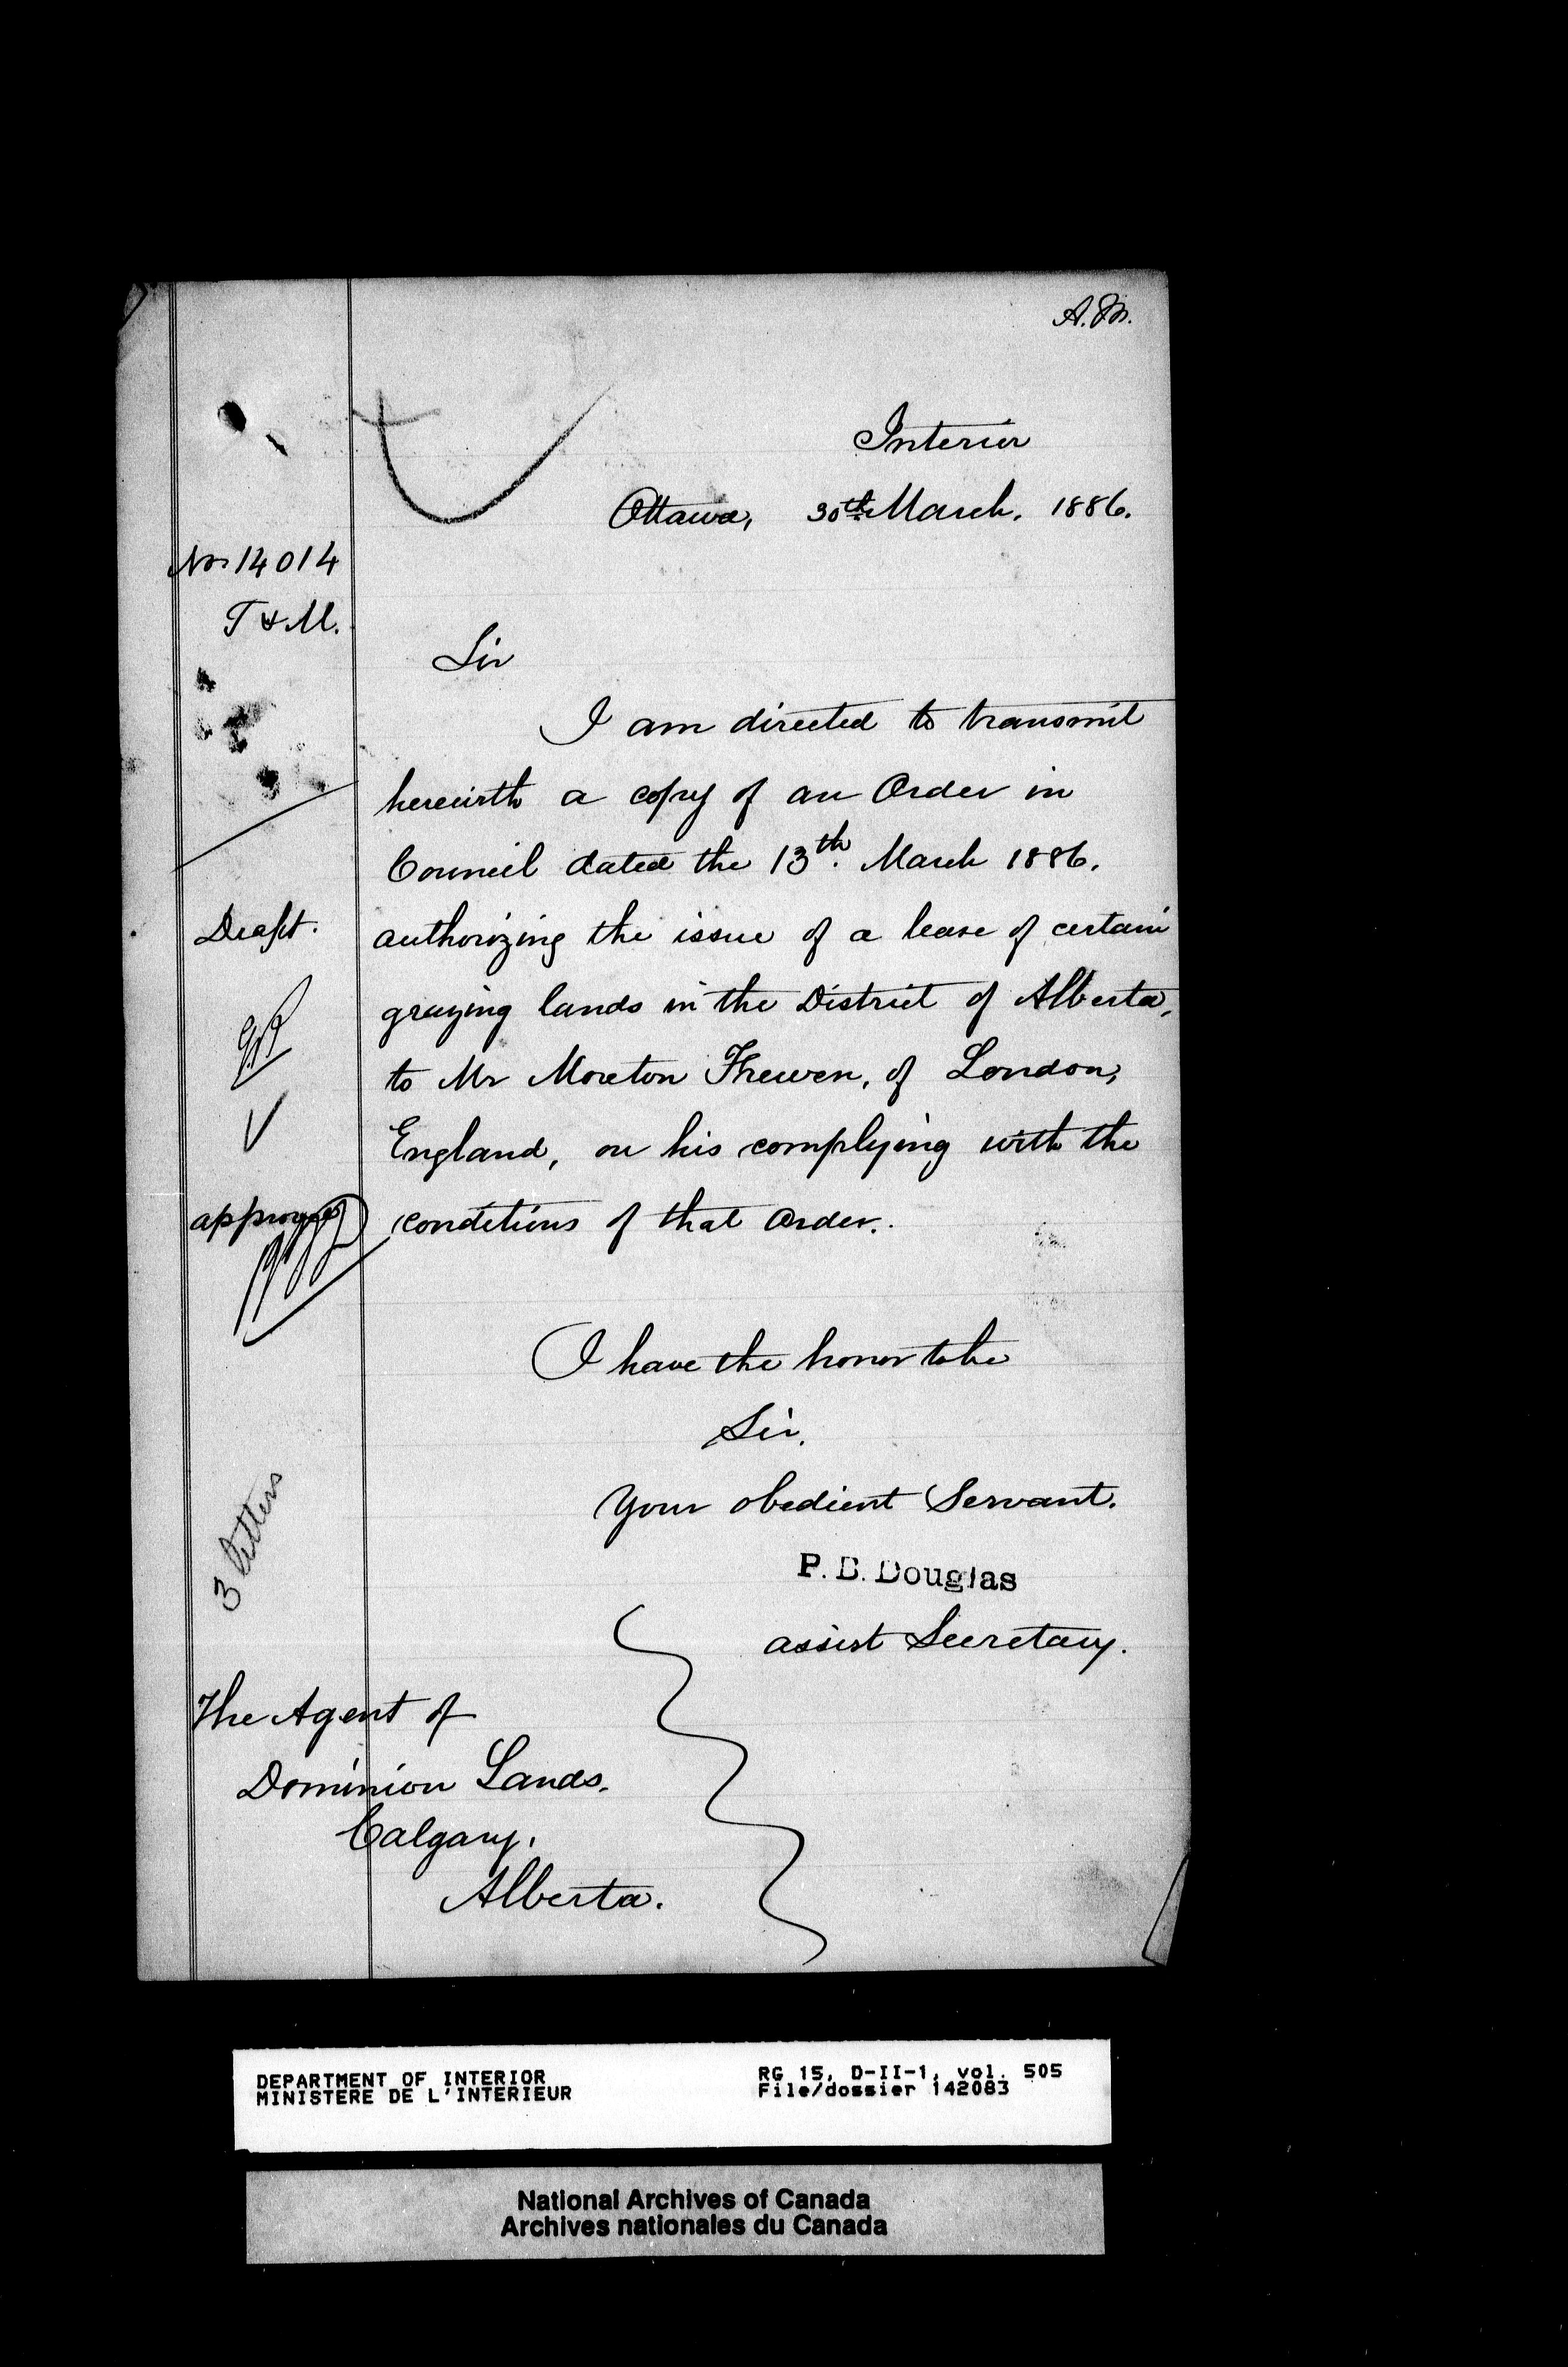 A.M.
Interior
Ottawa, 30th March. 1886.
No 14014
T & M.
Sir
I am directed to transmit
herewith a copy of an Order in
Council dated the 13th. March 1886.
Draft.
authorizing the issue of a lease of certain
grazing lands in the District of Alberta,
to Mr Moreton Frewen, of London,
England, on his complying with the
approved
conditions of that Order.
I have the honor to be
Sir.
Your obedient Servant.
3 letters
P. B. Douglas
assist Secretary.
The Agent of
Dominion Lands.
Calgary.
Alberta.
DEPARTMENT OF INTERIOR
MINISTERE DE L'INTERIEUR
RG 15, D-II-1, vol. 505
File/dossier 142083
National Archives of Canada
Archives nationales du Canada